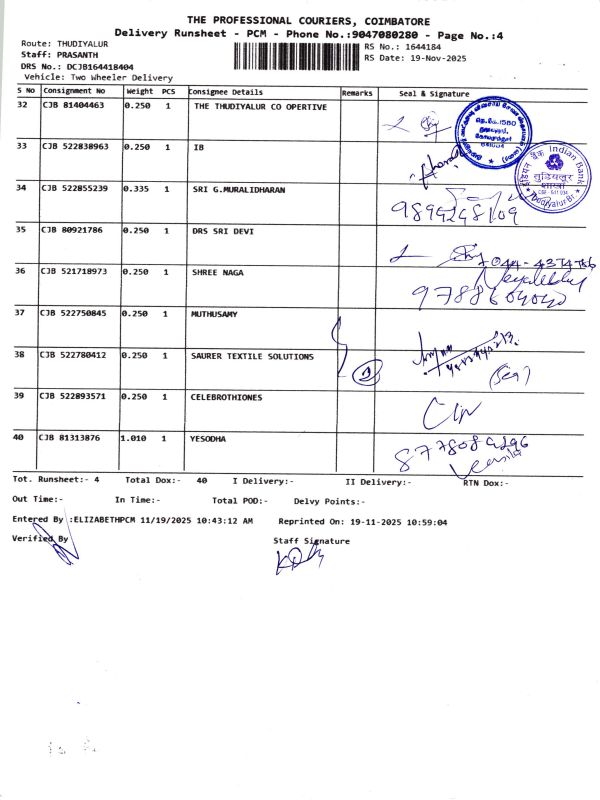 THE PROFESSIONAL COURIERS, COIMBATORE
Delivery Runsheet - PCM - Phone No.:9047080280 - Page No.:4
Route: THUDIYALUR
RS No.: 1644184
Staff: PRASANTH
RS Date: 19-Nov-2025
DRS No.: DCJB164418404
Vehicle: Two Wheeler Delivery
S No Consignment No Weight PCS Consignee Details Remarks Seal & Signature
32 CJB 81404463 0.250 1 THE THUDIYALUR CO OPERTIVE
641034
33 CJB 522838963 0.250 1 IB
इंडियन बैंक Indian Bank
तुडियलूर
शाखा
Thudiyalur Br.
34 CJB 522855239 0.335 1 SRI G.MURALIDHARAN
9899248109
35 CJB 80921786 0.250 1 DRS SRI DEVI
36 CJB 521718973 0.250 1 SHREE NAGA
37 CJB 522750845 0.250 1 MUTHUSAMY
38 CJB 522780412 0.250 1 SAURER TEXTILE SOLUTIONS
39 CJB 522893571 0.250 1 CELEBROTHIONES
40 CJB 81313876 1.010 1 YESODHA
Tot. Runsheet:- 4 Total Dox:- 40 I Delivery:- II Delivery:- RTN Dox:-
Out Time:- In Time:- Total POD:- Delvy Points:-
Entered By :ELIZABETHPCM 11/19/2025 10:43:12 AM Reprinted On: 19-11-2025 10:59:04
Verified By Staff Signature